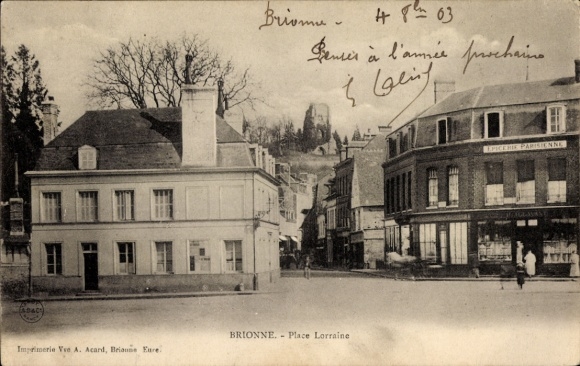 Brionne - 4 8bre 03
Pensez à l'année prochaine
EPICERIE PARISIENNE
BRIONNE. - Place Lorraine
Imprimerie Vve A. Acard, Brionne Eure.